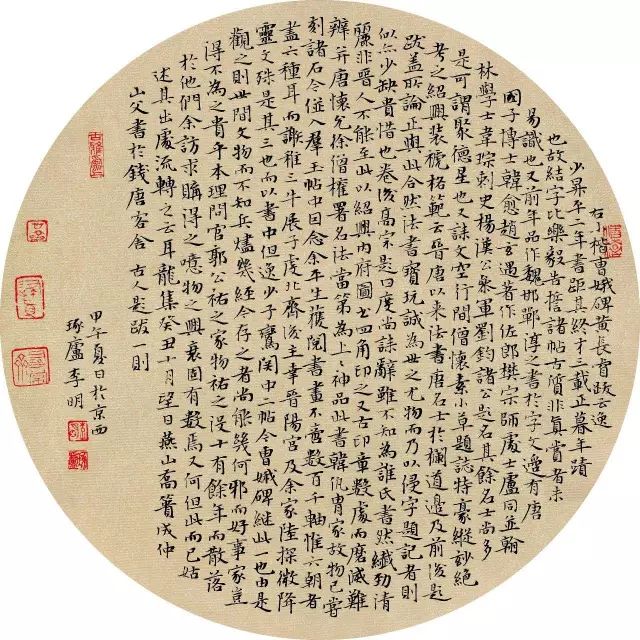 右小楷曹娥碑黄長睿跋云逸
少昇平二年書距其終才三載正暮年蹟
也故結字比樂毅告誓諸帖古質非真賞者未
易識也又前年品作魏邯鄲淳之書於字文邊有唐
國子博士韓愈趙玄遇著作佐郎樊宗師處士盧同並翰
林學士韋琮刺史楊漢公參軍劉鈞諸公題名其餘名士尚多
是可謂聚德星也又誄文空行間僧懷素小草題誌特豪縱妙絶
考之紹興裝褫格範云晉唐以來法書唐名士於欄道邊及前後題
跋盖所論正與此合然法書寶玩誠為世之尤物而乃以侵字題記者則
似亦少缺貴惜也卷後高宗是曰度尚誄辭雖不知為誰氏書然纖勁清
麗非晉人不能至此以紹興內府圖書四角印之又古印章數處而磨滅難
辨并唐懷充徐僧權署名法當第為上上神品此書韓侂胄家故物已嘗
刻諸石今併入羣玉帖中因念余平生獲閱書畫不啻數百千軸惟六朝者
盖六種耳而謝稚三牛展子虔北齊後主幸晉陽宮及余家陸探微降
靈文殊是其三也而以書中但逸少子鸞閣中二帖今曹娥碑繼此一也由是
觀之則世間文物而不知兵燼幾經今存之者尚能幾何邪而好事家豈
得不為之貴乎本理問官郭公祐之家物祐之沒十有餘年而散落
於他們余訪求購得之噫物之興衰固有數焉又何但此而已姑
述其出處流轉之云耳龍集癸丑十月望日燕山喬簣成仲
山父書於錢唐客舍 古人題跋一則
甲午夏日於京西
琢廬李明